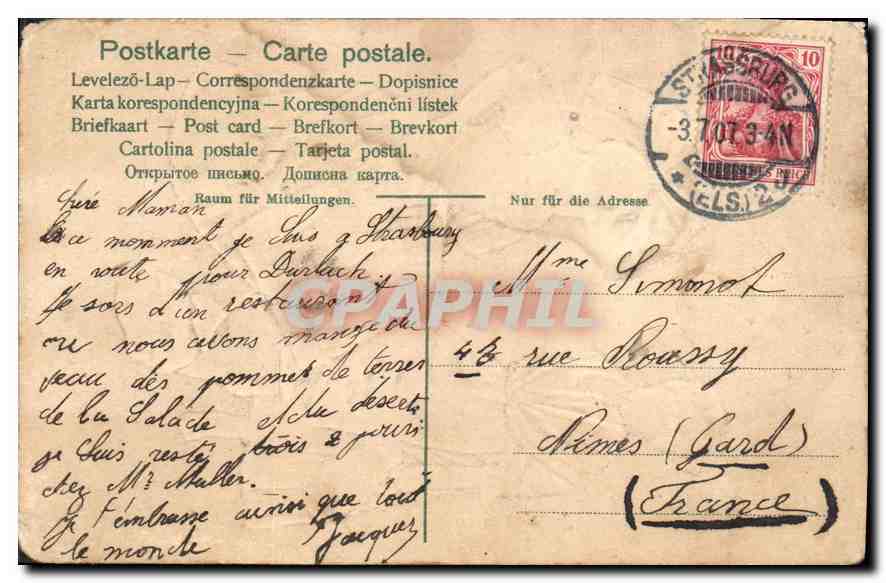 Postkarte — Carte postale.
Levelezö-Lap — Correspondenzkarte — Dopisnice
Karta korespondencyjna — Korespondenčni lístek
Briefkaart — Post card — Brefkort — Brevkort
Cartolina postale — Tarjeta postal.
Открытое письмо. Дописна карта.
Raum für Mitteilungen.
Nur für die Adresse.
Maman
ce momment je suis a Strasbourg
en route pour Durlach
Je sors d'un restaurant
ou nous avons mangé du
veau des pommes de terres
de la Salade et du déserts
je suis resté trois 2 jours
chez Mr Muller.
Je t'embrasse ainsi que tout
le monde Jacques
Mme Simonot
4b rue Roussy
Nimes (Gard)
(France)
STRASSBURG
-3.7.07. 3-4N
* (ELS.) 2
10
REICH
CPAPHIL